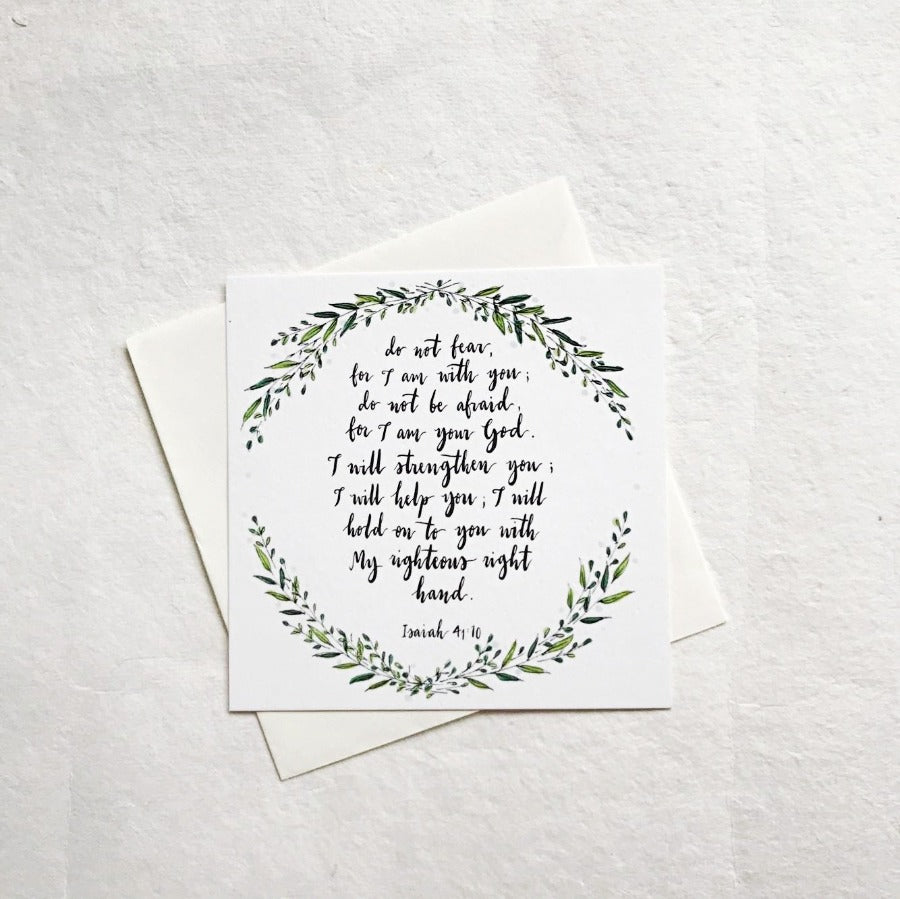 do not fear,
for I am with you;
do not be afraid,
for I am your God.
I will strengthen you;
I will help you; I will
hold on to you with
My righteous right
hand.
Isaiah 41:10